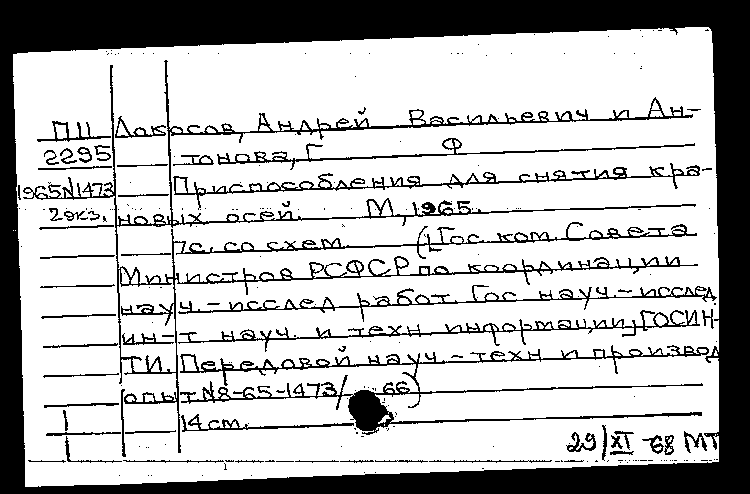 П11 Локосов, Андрей Васильевич и Ан-
2295 тонова, Г Ф
1965N1473 Приспособления для снятия кра-
2экз. новых осей. М., 1965.
7с. со схем. ([Гос. ком. Совета
Министров РСФСР по координации
науч.-исслед работ. Гос науч.-исслед
ин-т науч. и техн информации, ГОСИН-
ТИ. Передовой науч.-техн и производ
опыт №8-65-1473/ 66)
14 см.
29/XI -68 МТ